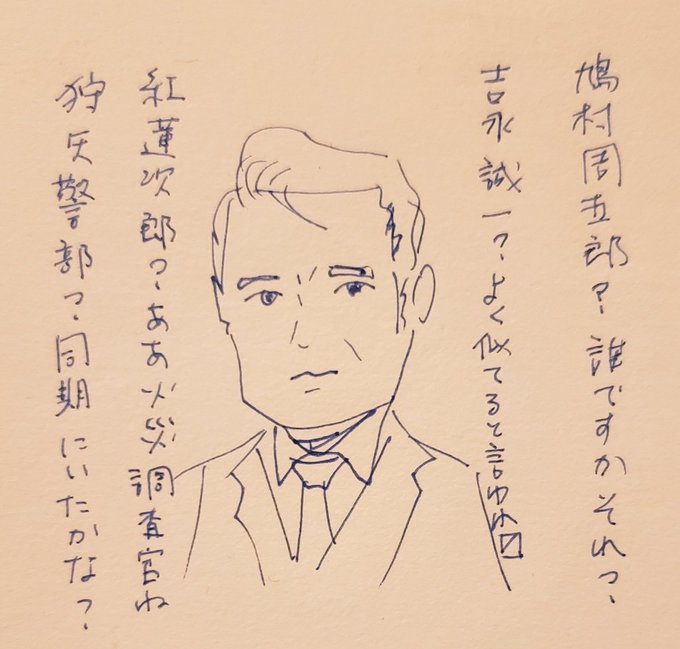 鳩村周五郎？誰ですかそれ？
吉永誠一？よく似てると言われ〼
紅蓮次郎？ああ火災調査官ね
狩矢警部？同期にいたかな？